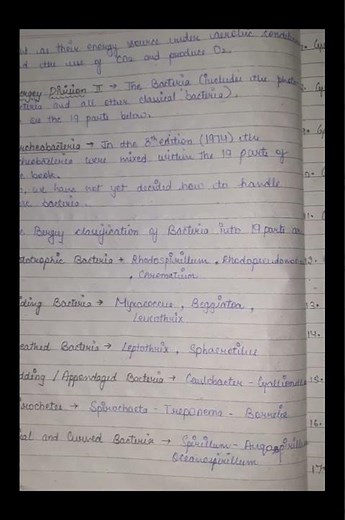 as their energy source under aerobic condition
the use of CO2 and produce O2.
Division II → The Bacteria (includes the photo
and all other classical bacteria).
in the 19 parts below.
→ In the 8th edition (1974) the
were mixed within the 19 parts of
book.
we have not yet decided how to handle
bacteria.
Bergey classification of Bacteria into 19 parts are
Bacteria → Rhodospirillum, Rhodopseudomonas
, Chromatium
Bacteria → Myxococcus, Beggiatoa,
Leucothrix
Bacteria → Leptothrix, Sphaerotilus
/ Appendaged Bacteria → Caulobacter - Gallionella
→ Spirochaeta - Treponema - Borrelia
and Curved Bacteria → Spirillum -
Oceanospirillum
13.
14.
15.
16.
17.